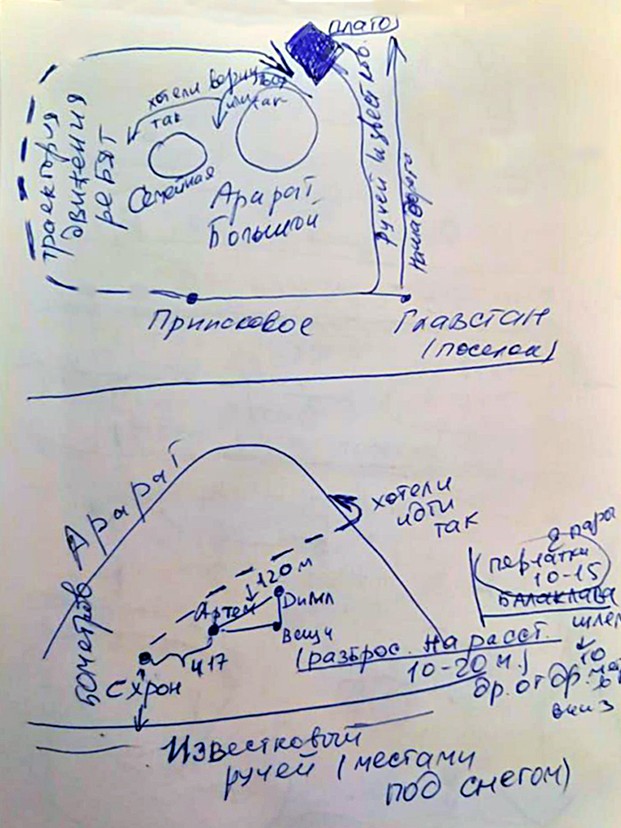 плато
хотели верну
так
или
так
Траектория
движения
ребят
Семейная
Арарат
Большой
Ручей Известков.
Приисковое
Главстан
(поселок)
Арарат
хотели
идти
так
2 пара
перчатки
10-15
БАЛАКЛАВА
шлем
120 м
Артем
Дима
Вещи
417
СХРОН
(разброс. на расст.
10-20 м.)
др. от др.
вниз
Известковый
ручей (местами
под снегом)